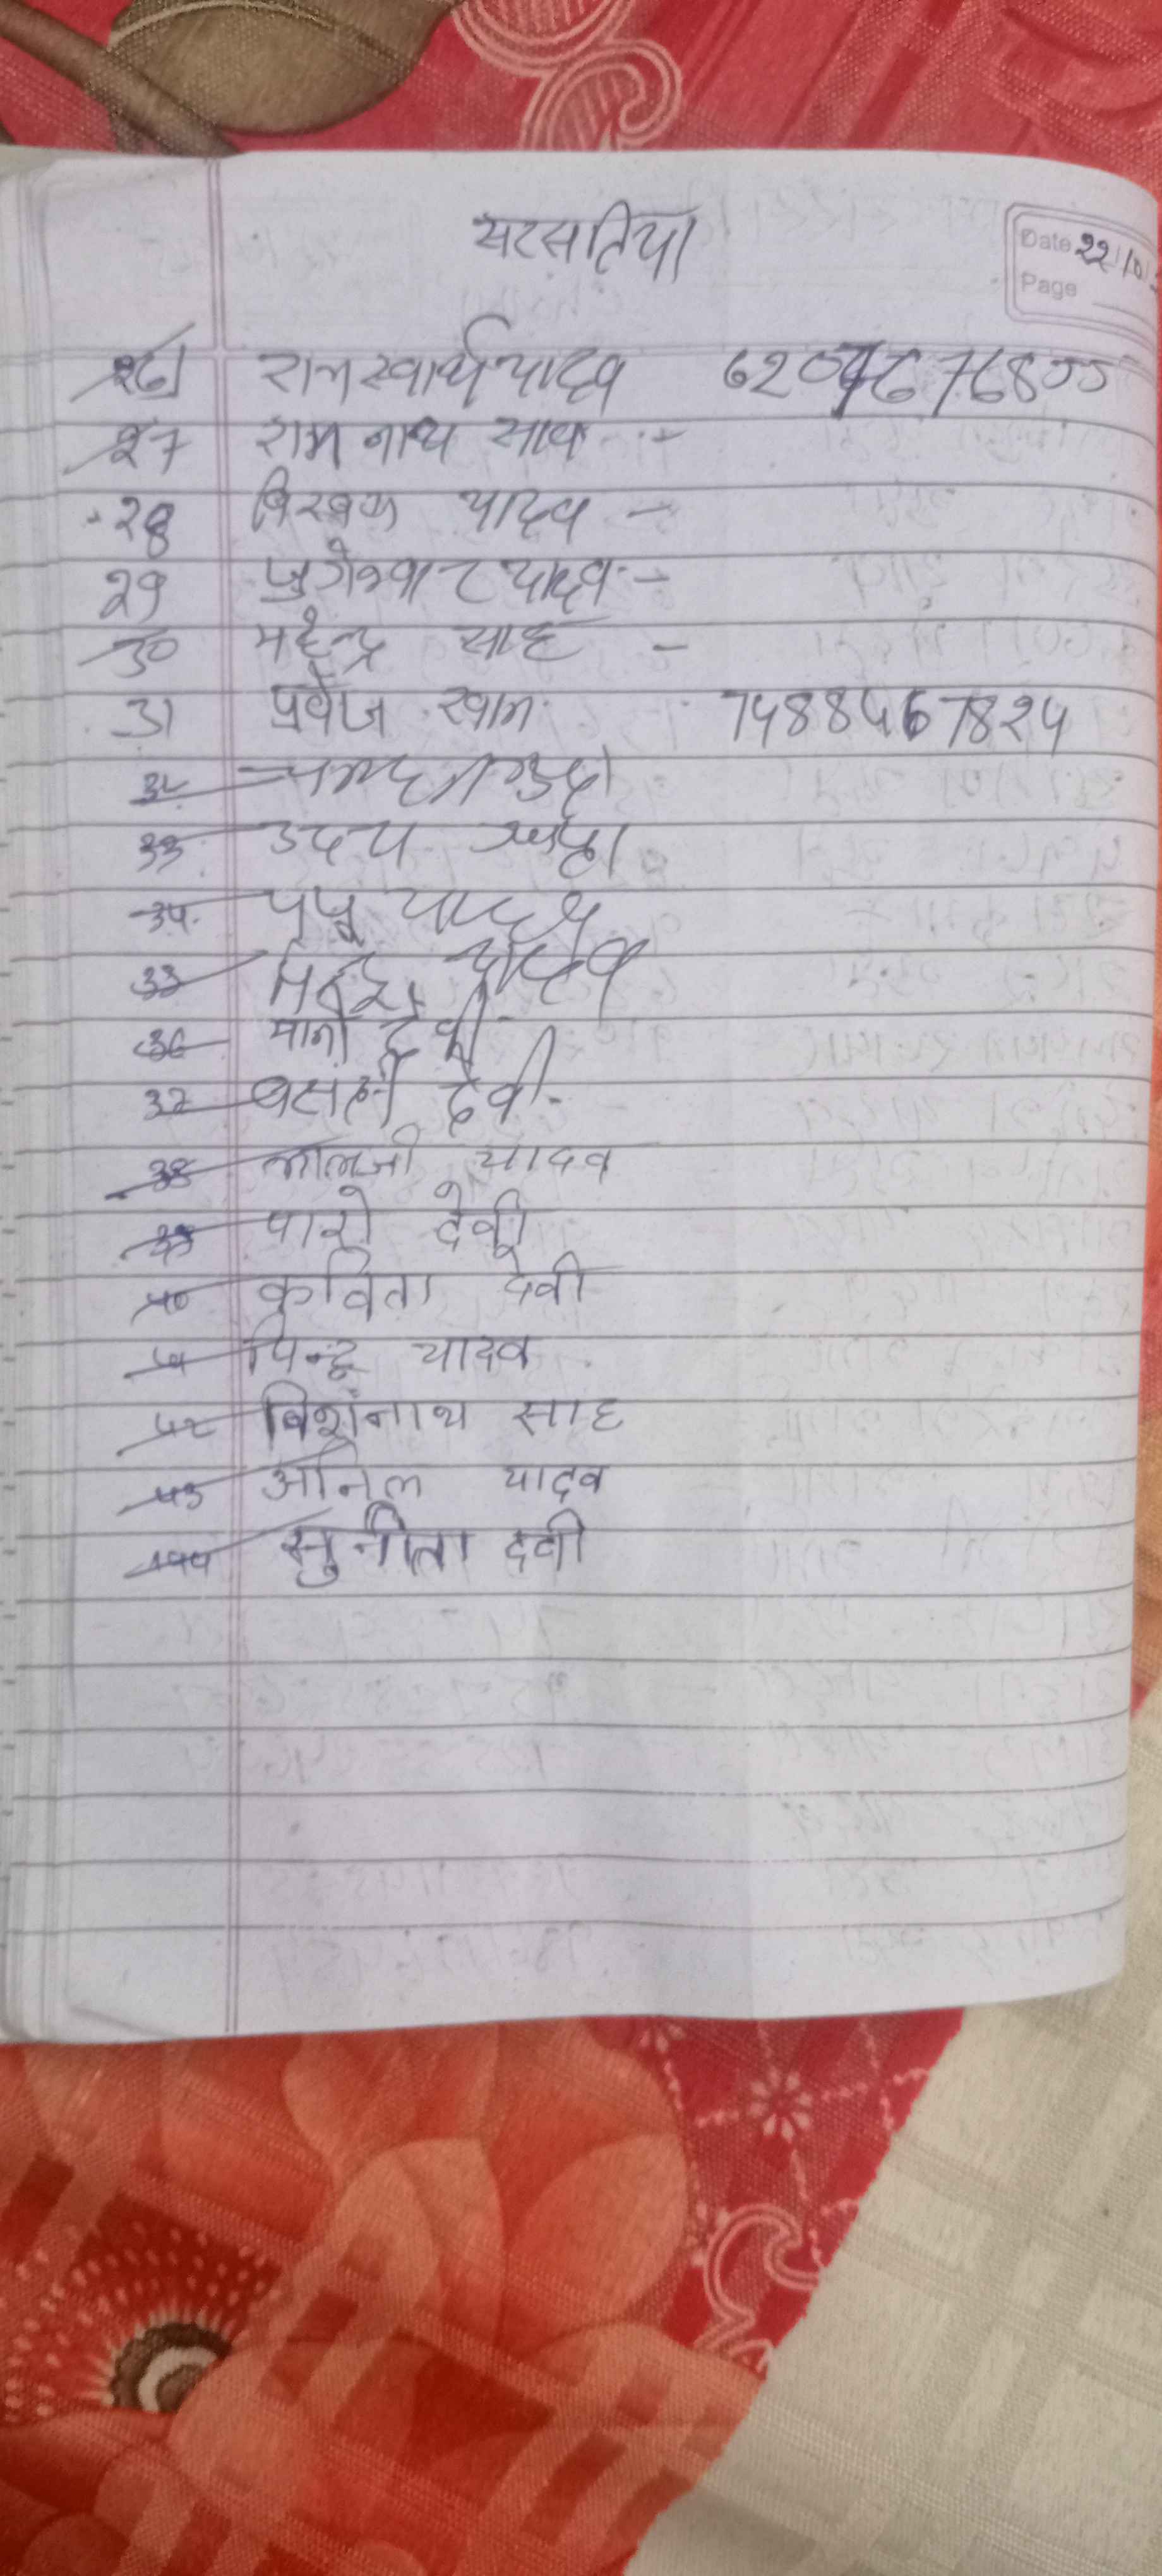 सरसतिया
Date 22/10/
Page
26 रामस्वार्थ यादव
27 रामनाथ साव :-
28 यादव -
29 यादव -
30 महेन्द्र साह -
31 प्रवेज खान 7488567824
32
33 उदय
34 पप्पू यादव
33 यादव
36 देवी
37 बसंती देवी
38 लालजी यादव
39 पारो देवी
40 कविता देवी
41 पिन्टू यादव
42 बिशंनाथ साह
43 अनिल यादव
44 सुनीता देवी